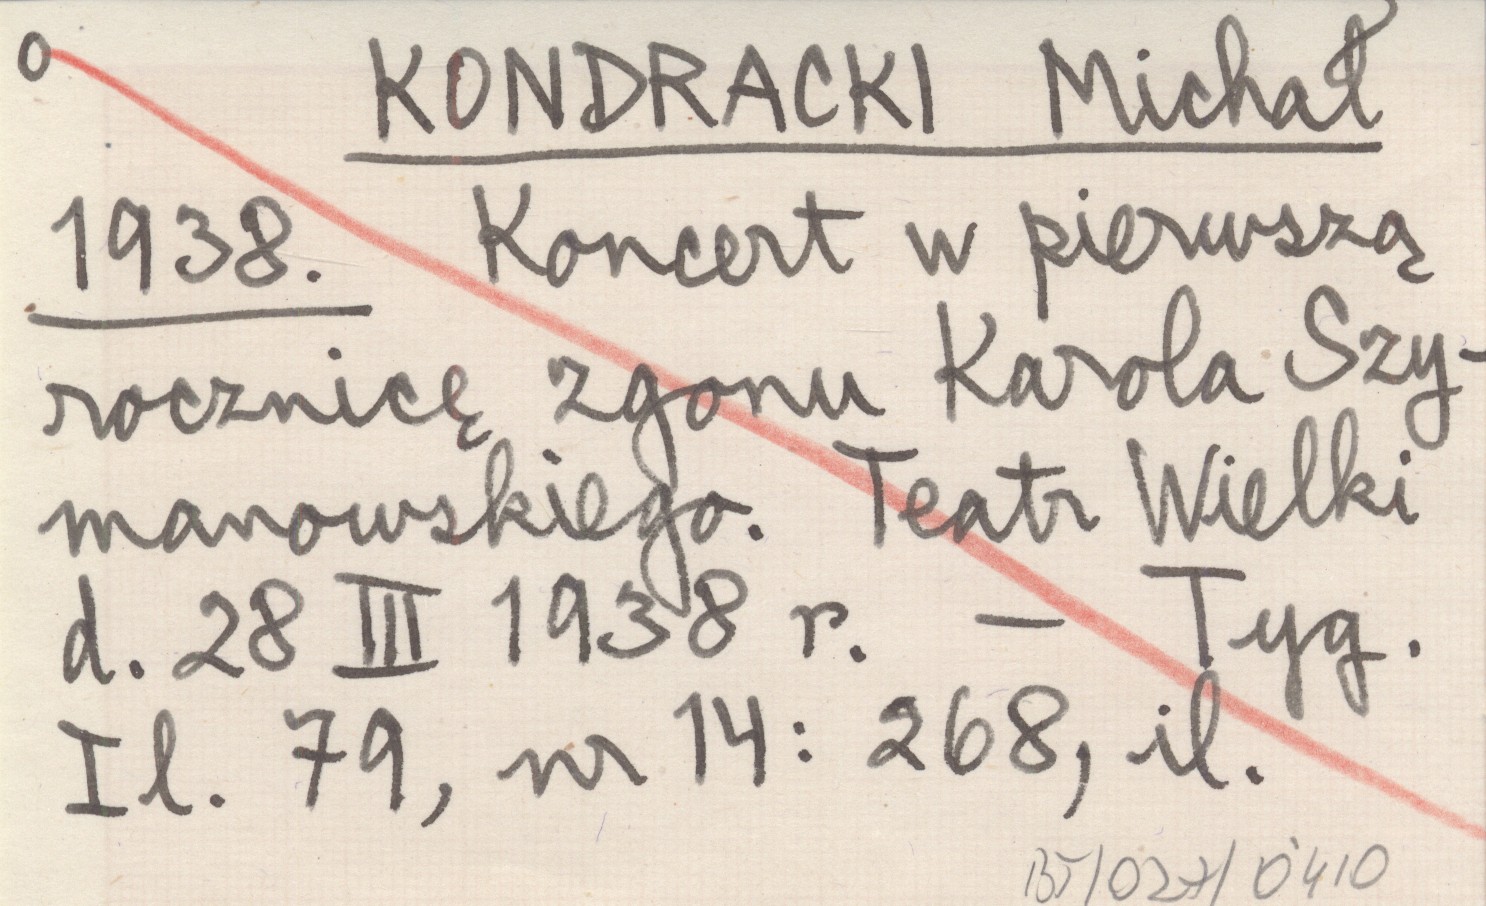 o KONDRACKI Michał
1938. Koncert w pierwszą
rocznicę zgonu Karola Szy-
manowskiego. Teatr Wielki
d. 28 III 1938 r. — Tyg.
Il. 79, nr 14: 268, il.
BJ/027/0410